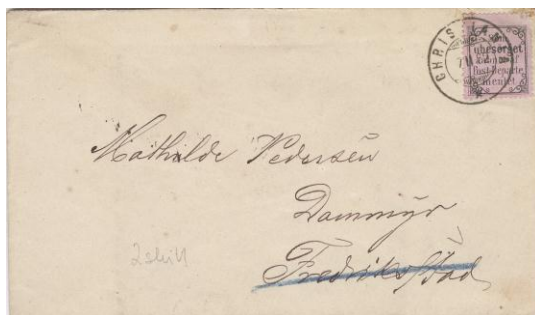 CHRISTIANIA
ubesørget
Post-Departe
mentet
Mathilde Pedersen
Dammyr
Fredriksstad
2 skill